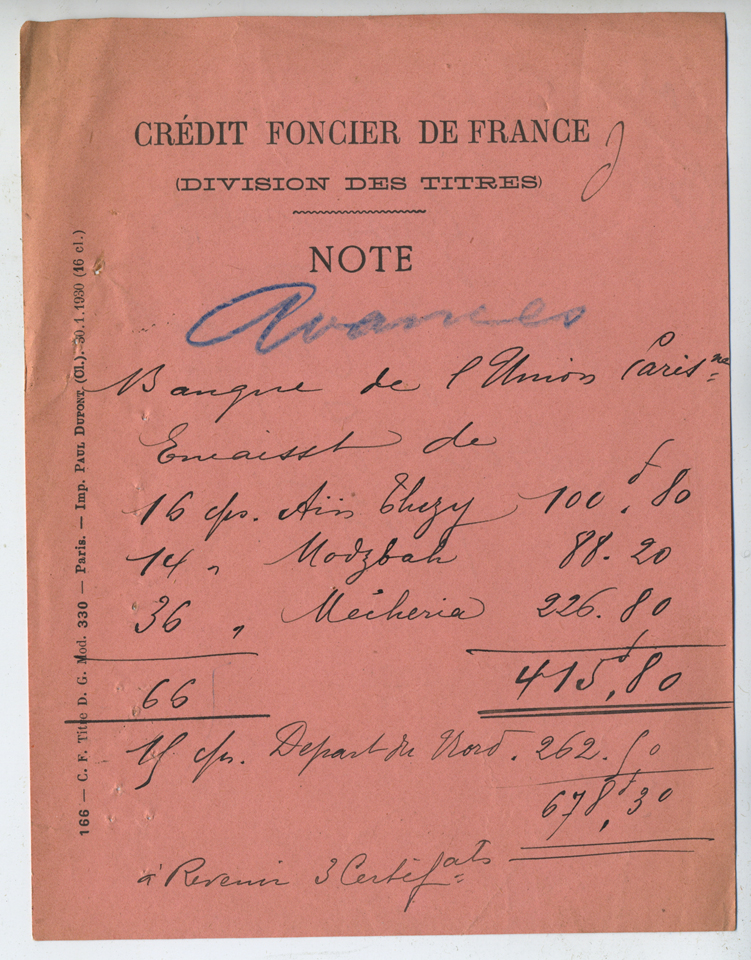 CRÉDIT FONCIER DE FRANCE
(DIVISION DES TITRES)
NOTE
Avances
Banque de l'Union Parisne
Encaisst de
16 cps. Aïn Thizy 100f,80
14 " Modzbah 88.20
36 " Mécheria 226.80
66 415f,80
15 cps. Départ du Nord. 262.50
678f,30
à Revenir 3 Certifats
166 — C. F. Titre D. G. Mod. 330 — Paris. — Imp. PAUL DUPONT (Cl.). 30.1.1930 (16 cl.)